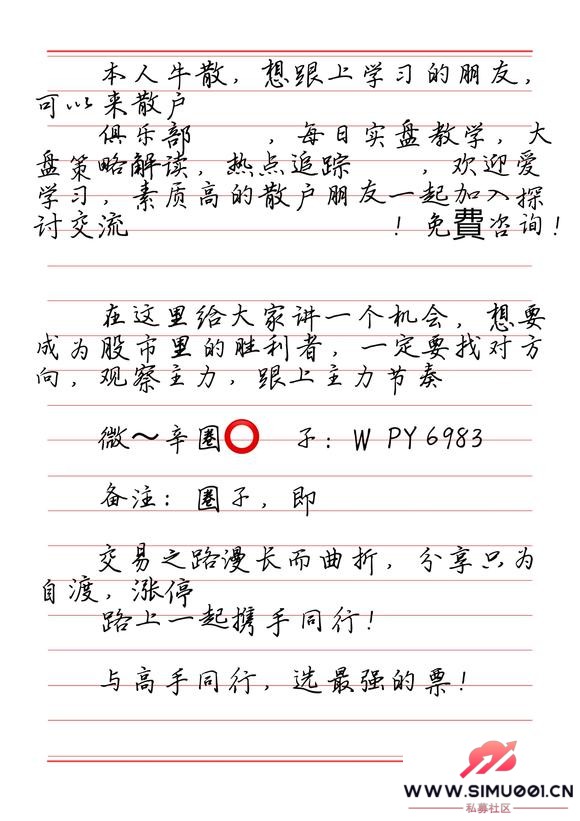 本人牛散，想跟上学习的朋友，
可以来散户
俱乐部，每日实盘教学，大
盘策略解读，热点追踪，欢迎爱
学习，素质高的散户朋友一起加入探
讨交流！免費咨询！
在这里给大家讲一个机会，想要
成为股市里的胜利者，一定要找对方
向，观察主力，跟上主力节奏
微～辛圈⭕子：W PY6983
备注：圈子，即
交易之路漫长而曲折，分享只为
自渡，涨停
路上一起携手同行！
与高手同行，选最强的票！
WWW.SIMU001.CN
私募社区